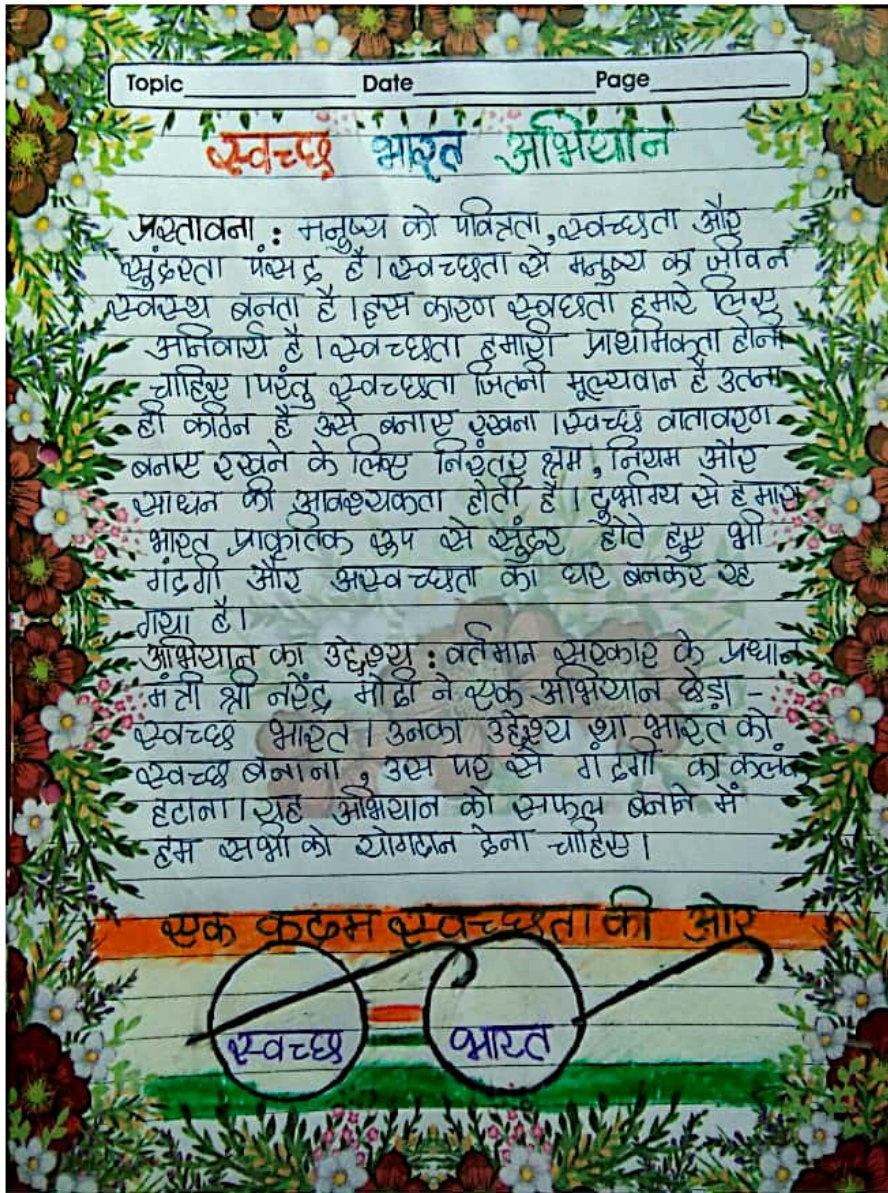 Topic Date Page
स्वच्छ भारत अभियान
प्रस्तावना : मनुष्य को पवित्रता, स्वच्छता और
सुंदरता पंसद है । स्वच्छता से मनुष्य का जीवन
स्वस्थ बनता है । इस कारण स्वछता हमारे लिए
अनिवार्य है । स्वच्छता हमारी प्राथमिकता होनी
चाहिए । परंतु स्वच्छता जितनी मूल्यवान है उतना
ही कठिन है उसे बनाए रखना । स्वच्छ वातावरण
बनाए रखने के लिए निरंतर श्रम, नियम और
साधन की आवश्यकता होती है । दुर्भाग्य से हमारा
भारत प्राकृतिक रूप से सुंदर होते हुए भी
गंदगी और अस्वच्छता का घर बनकर रह
गया है ।
अभियान का उद्देश्य : वर्तमान सरकार के प्रधान
मंत्री श्री नरेंद्र मोदी ने एक अभियान छेड़ा -
स्वच्छ भारत । उनका उद्देश्य था भारत को
स्वच्छ बनाना, उस पर से गंदगी का कलंक
हटाना । यह अभियान को सफल बनाने में
हम सभी को योगदान देना चाहिए ।
एक कदम स्वच्छता की ओर
स्वच्छ भारत